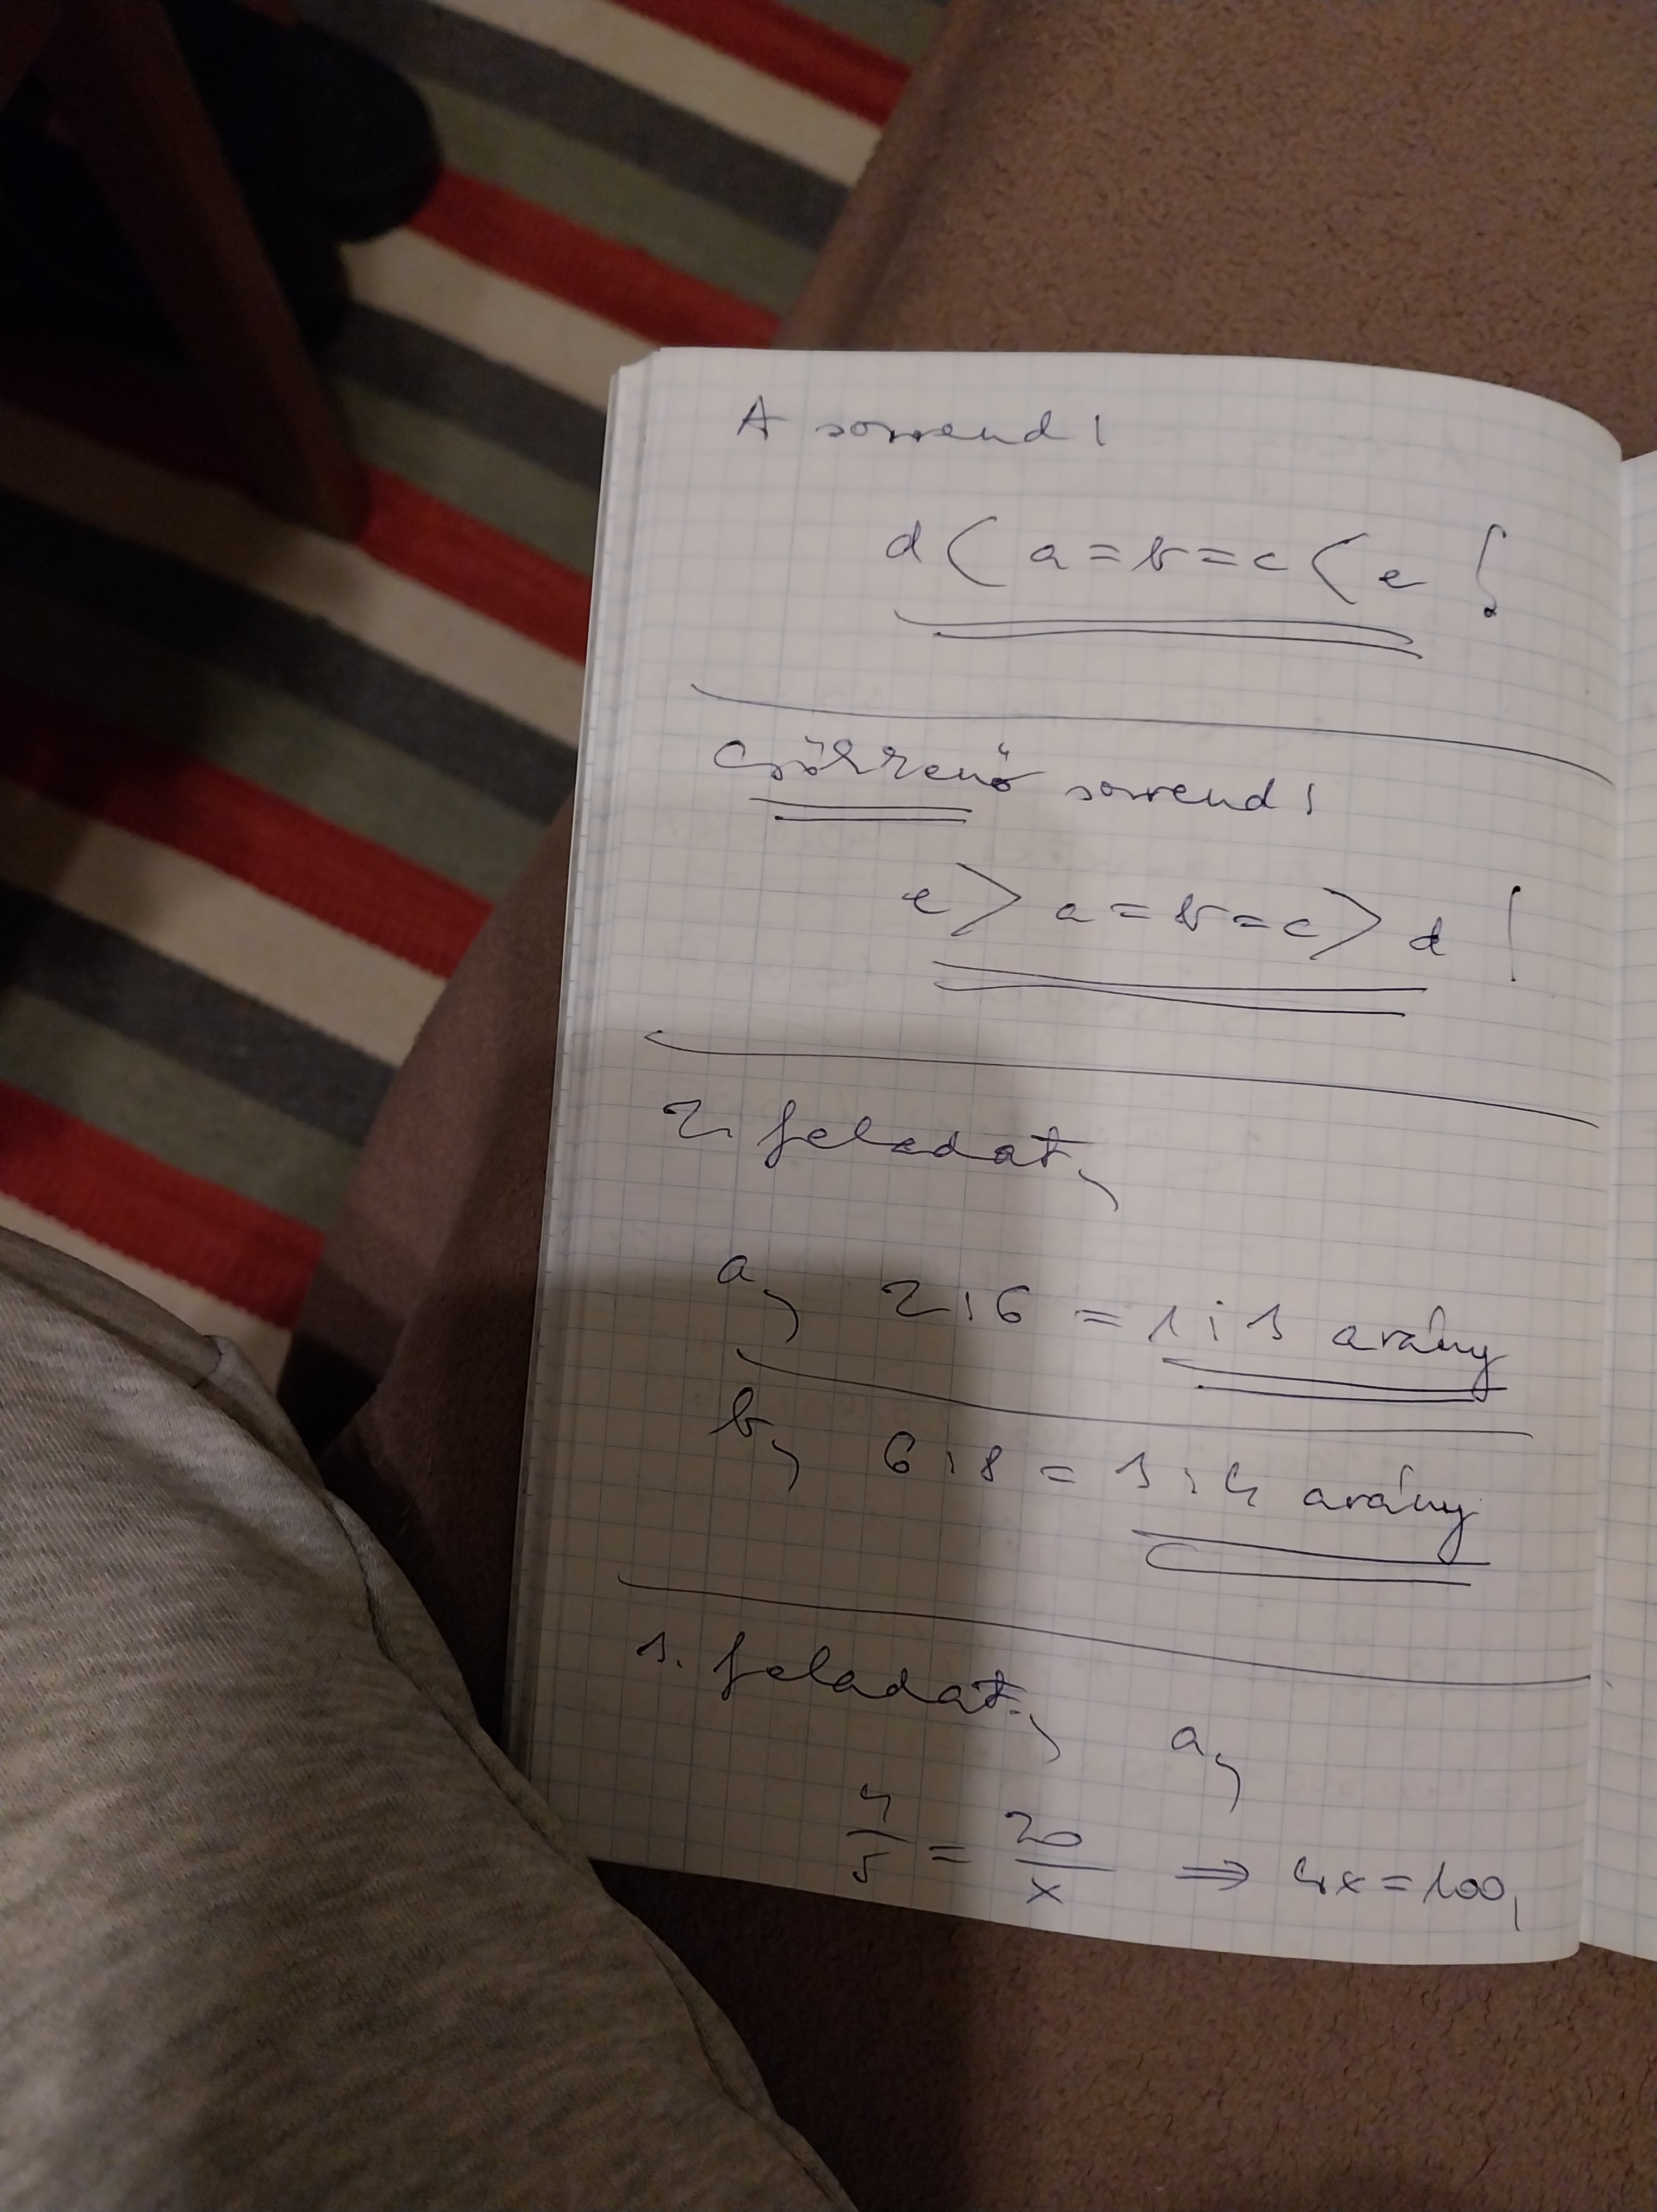 A sorrend!
d < a = b = c < e !
Csökkenő sorrend!
e > a = b = c > d !
2. feladat,
a, 2:6 = 1:3 arány
b, 6:8 = 3:4 arány
3. feladat, a,
4/5 = 20/x ⇒ 4x = 100,